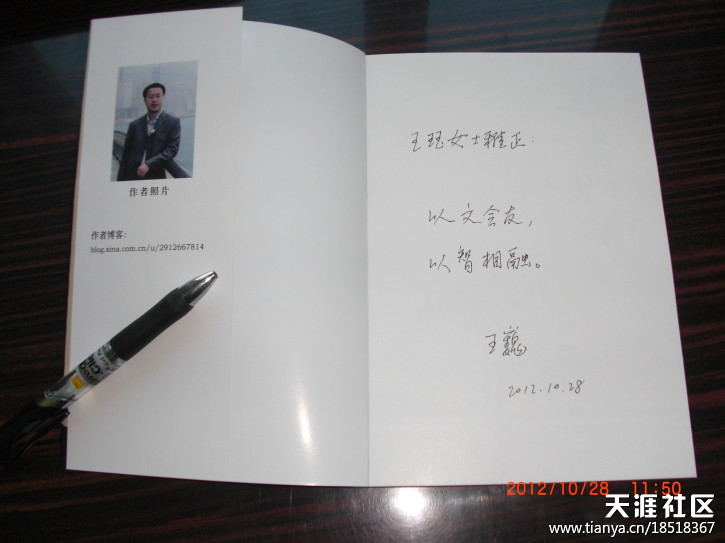 作者照片
作者博客:
blog.sina.com.cn/u/2912667814
王珏女士雅正:
以文会友,
以智相融。
王
2012.10.28
2012/10/28 11:50
天涯社区
www.tianya.cn/18518367